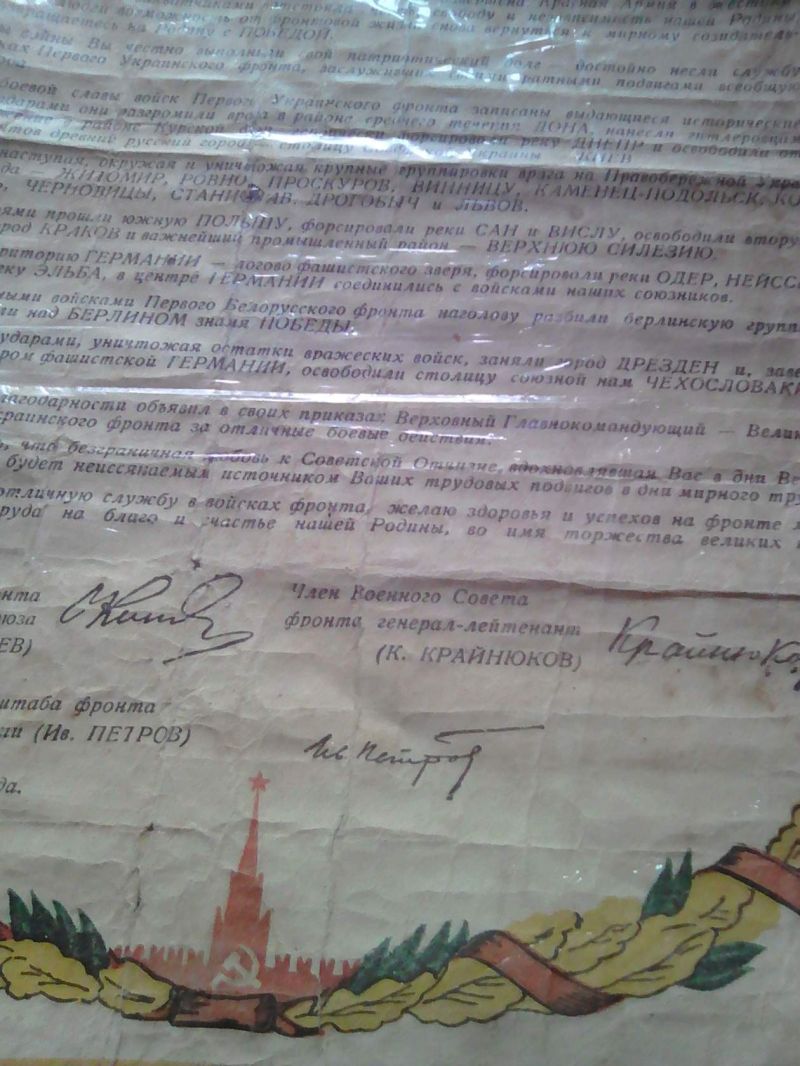 свободу и независимость нашей Родины,
возможность от фронтовой жизни снова вернуться к мирному созидатель
на Родину с ПОБЕДОЙ.
войны Вы честно выполнили свой патриотический долг — достойно несли службу
ках Первого Украинского фронта, заслуживших своими ратными подвигами всеобщую
боевой славы войск Первого Украинского фронта записаны выдающиеся исторические
ударами они разгромили врага в районе среднего течения ДОНА, нанесли гитлеровцам
в районе Курской форсировали реку ДНЕПР и освободили от
тов древний русский город — столицу Украины КИЕВ
наступая, окружая и уничтожая крупные группировки врага на Правобережной Укра
да — ЖИТОМИР, РОВНО, ПРОСКУРОВ, ВИННИЦУ, КАМЕНЕЦ-ПОДОЛЬСК, КО
Р, ЧЕРНОВИЦЫ, СТАНИСЛАВ, ДРОГОБЫЧ и ЛЬВОВ.
ями прошли южную ПОЛЬШУ, форсировали реки САН и ВИСЛУ, освободили втору
ород КРАКОВ и важнейший промышленный район — ВЕРХНЮЮ СИЛЕЗИЮ.
рриторию ГЕРМАНИИ — логово фашистского зверя, форсировали реки ОДЕР, НЕЙСС
еку ЭЛЬБА, в центре ГЕРМАНИИ соединились с войсками наших союзников.
ными войсками Первого Белорусского фронта наголову разбили берлинскую групп
ли над БЕРЛИНОМ знамя ПОБЕДЫ.
ударами, уничтожая остатки вражеских войск, заняли город ДРЕЗДЕН и, заве
ром фашистской ГЕРМАНИИ, освободили столицу союзной нам ЧЕХОСЛОВАКИ
лагодарности объявил в своих приказах Верховный Главнокомандующий — Велик
краинского фронта за отличные боевые действия.
о, что безграничная любовь к Советской Отчизне, вдохновлявшая Вас в дни Ве
будет неиссякаемым источником Ваших трудовых подвигов в дни мирного тру
отличную службу в войсках фронта, желаю здоровья и успехов на фронте м
руда на благо и счастье нашей Родины, во имя торжества великих
онта
юза
ЕВ)
Член Военного Совета
фронта генерал-лейтенант
(К. КРАЙНЮКОВ)
Крайнюков
штаба фронта
ии (Ив. ПЕТРОВ)
Ив Петров
да.